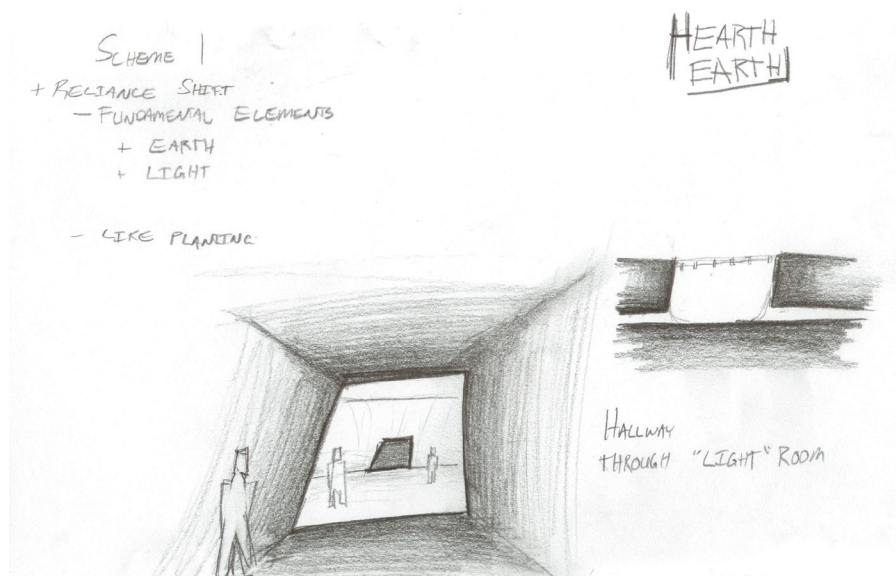 SCHEME 1
+ RELIANCE SHIFT
- FUNDAMENTAL ELEMENTS
+ EARTH
+ LIGHT
- LIKE PLANTING
HEARTH
EARTH
HALLWAY
THROUGH "LIGHT" ROOM